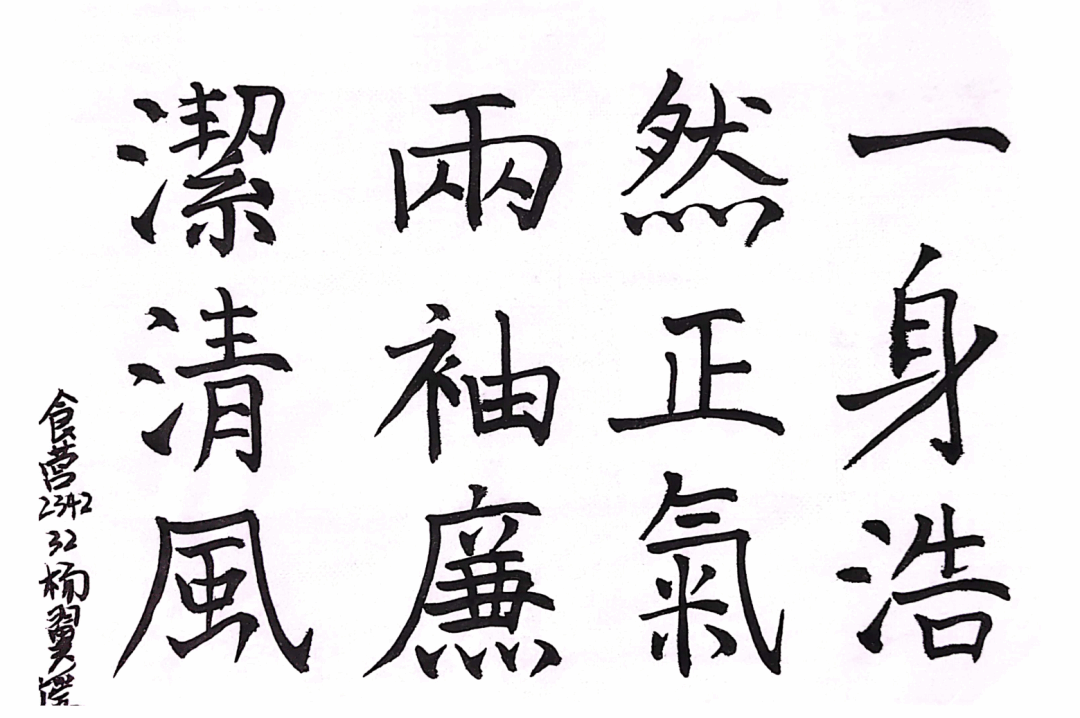 一身浩
然正氣
兩袖廉
潔清風
食营2342 32 杨翼